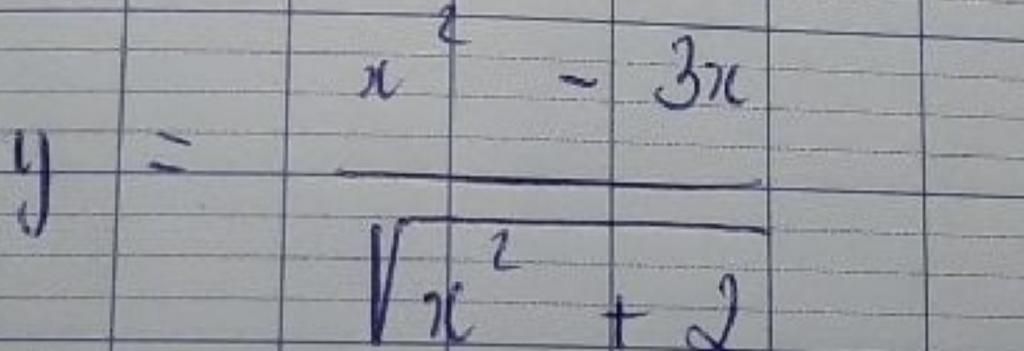 y = \frac{x^2 - 3x}{\sqrt{x^2 + 2}}